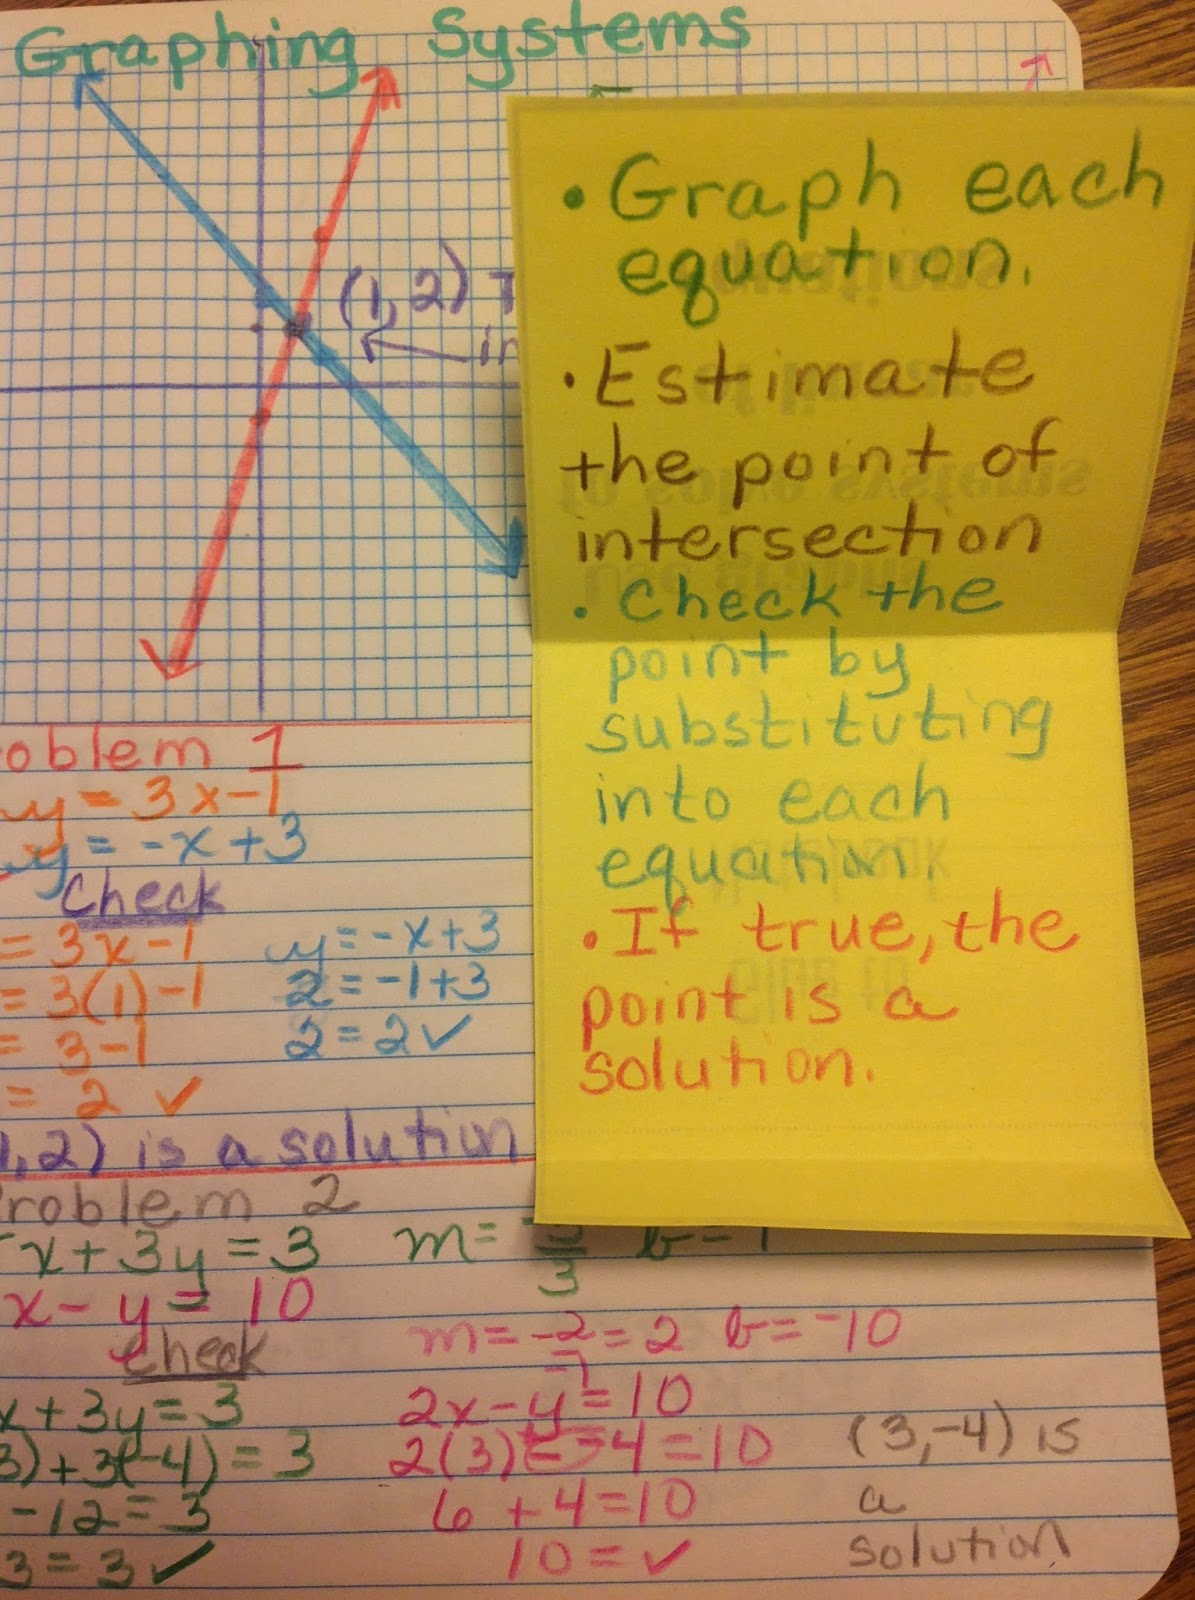 Graphing Systems
(1,2)
• Graph each
equation.
• Estimate
the point of
intersection
• Check the
point by
substituting
into each
equation.
• If true, the
point is a
solution.
oblem 1
y = 3x-1
y = -x+3
Check
= 3x-1
= 3(1)-1
= 3-1
= 2 ✓
y=-x+3
2=-1+3
2=2✓
1,2) is a solution
roblem 2
x+3y=3 m=
3
x-y=10
m=-2=2 b=-10
check
x+3y=3
3)+3(-4)=3
-12=3
3=3✓
2x-y=10
2(3)--4=10
6+4=10
10=✓
(3,-4) is
a
solution